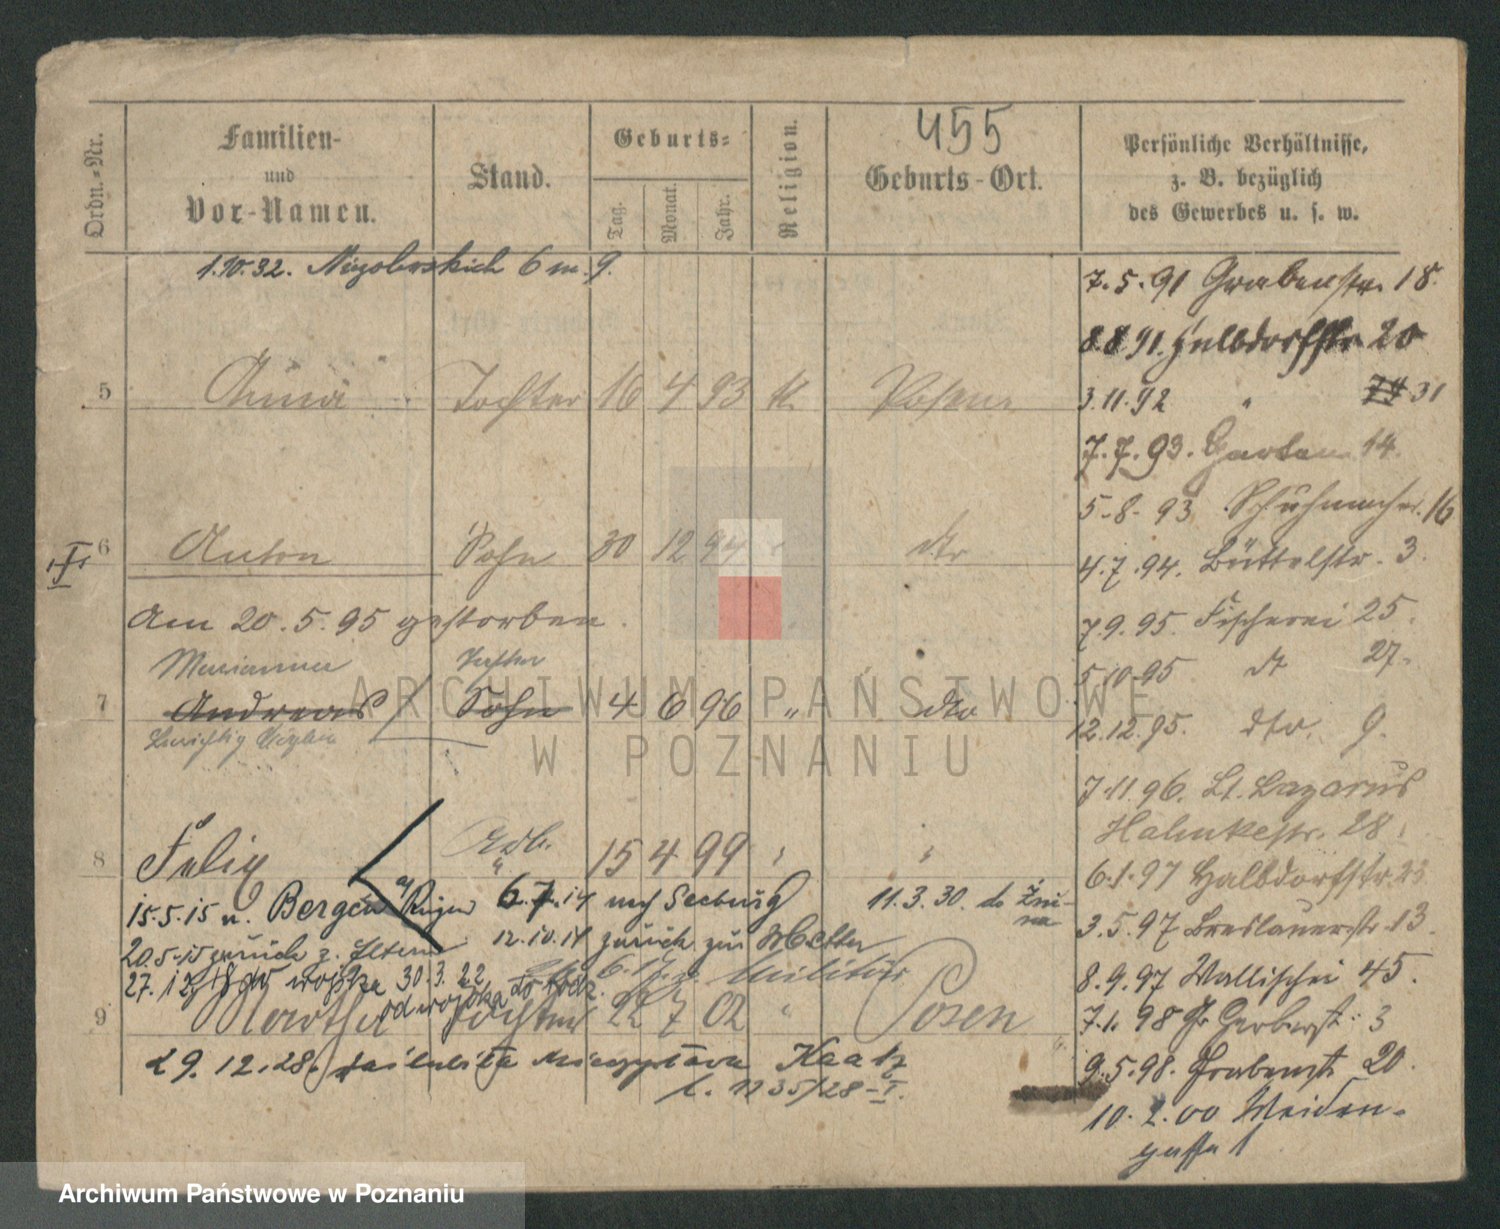 455
Ordn.-Nr.
Familien-
und
Vor-Namen.
Stand.
Geburts-
Tag. Monat. Jahr.
Religion.
Geburts-Ort.
Persönliche Verhältnisse,
z. B. bezüglich
des Gewerbes u. s. w.
1.10.32. 6 m. 9.
5 Anna Tochter 16 4 93 K. Posen
6 Anton Sohn 30 12 94 " dto
Am 20.5.95 gestorben.
Marianna Tochter
7 Andreas Sohn 4 6 96 " dto
8 Felix Sohn 15 4 99 " "
15.5.15 n. Bergen a/Rügen 6.7.14 nach Seeburg 11.3.30. do Żnina
20.5.15 zurück z. Eltern 12.10.14 zurück zur Mutter
27.12.18 do wojska 30.3.22 od wojska do Militär
9 Martha Tochter 22 7 02 " Posen
29.12.28. Kaatz
L. 1235/28-I.
7.5.91 Grabenstr. 18.
8.8.91. Halbdorfstr 20
3.11.92 " 31
7.7.93. Garten 14.
5-8-93 Schuhmacher. 16
4.7.94. Büttelstr. 3.
7.9.95. Fischerei 25.
5.10.95 dt 27.
12.12.95. dto. 9.
7.11.96. St. Lazarus
Hahnkestr. 28.
6.1.97 Halbdorfstr. 22
3.5.97 Breslauerstr. 13.
8.9.97 Wallischei 45.
7.1.98 Gr Gerberst. 3
9.5.98. Grabenst 20.
10.2.00 Weiden-
gasse 1
ARCHIWUM PAŃSTWOWE
W POZNANIU
Archiwum Państwowe w Poznaniu